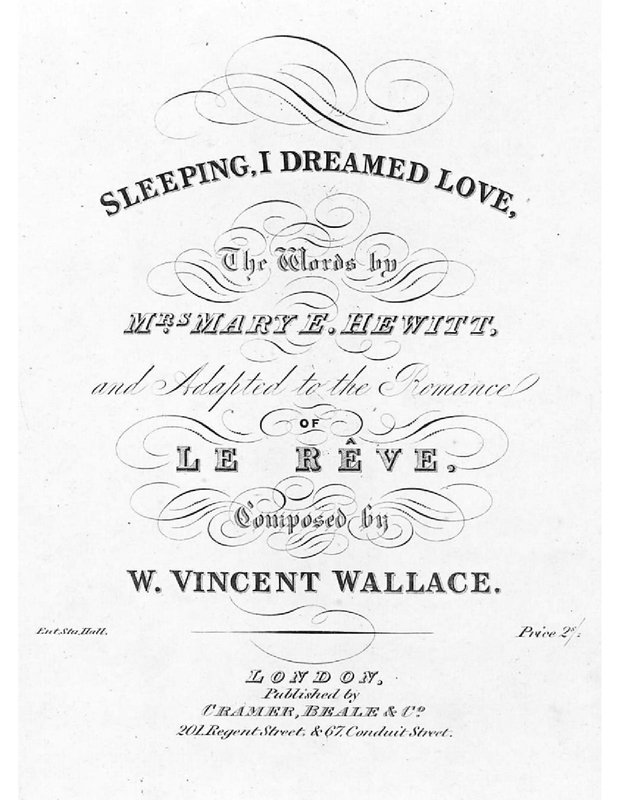 SLEEPING, I DREAMED LOVE,
The Words by
MRS MARY E. HEWITT,
and Adapted to the Romance
OF
LE RÊVE,
Composed by
W. VINCENT WALLACE.
Ent. Sta. Hall.
Price 2s/.
LONDON,
Published by
CRAMER, BEALE & Co
201. Regent Street. & 67. Conduit Street.